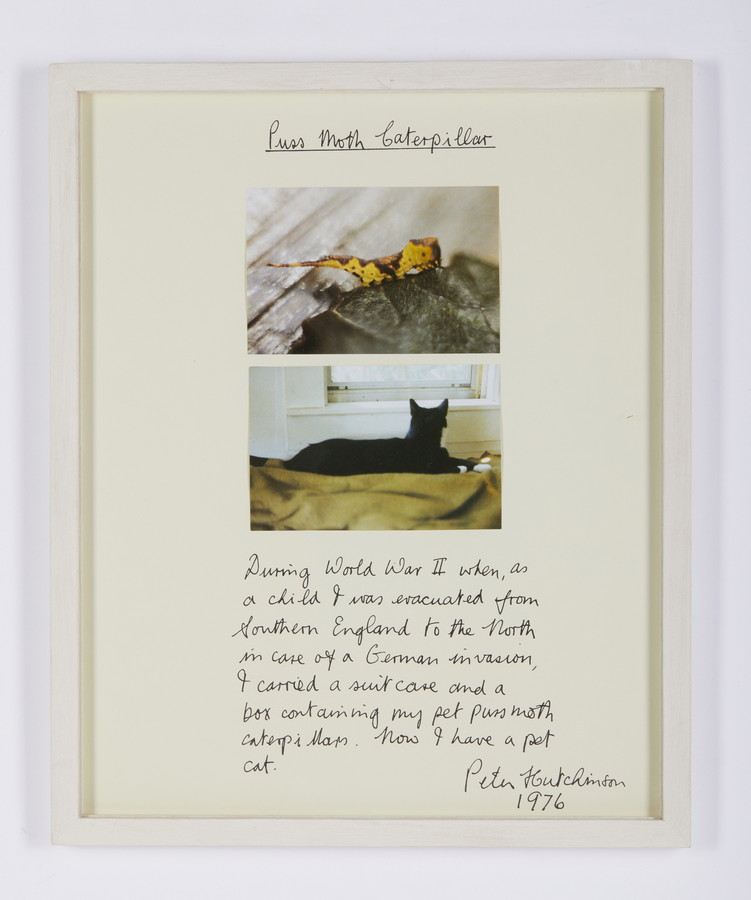 Puss Moth Caterpillar
During World War II when, as
a child I was evacuated from
Southern England to the North
in case of a German invasion,
I carried a suitcase and a
box containing my pet puss moth
caterpillars. Now I have a pet
cat.
Peter Hutchinson
1976